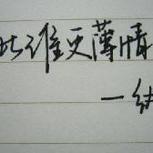 比谁更薄情
一纸